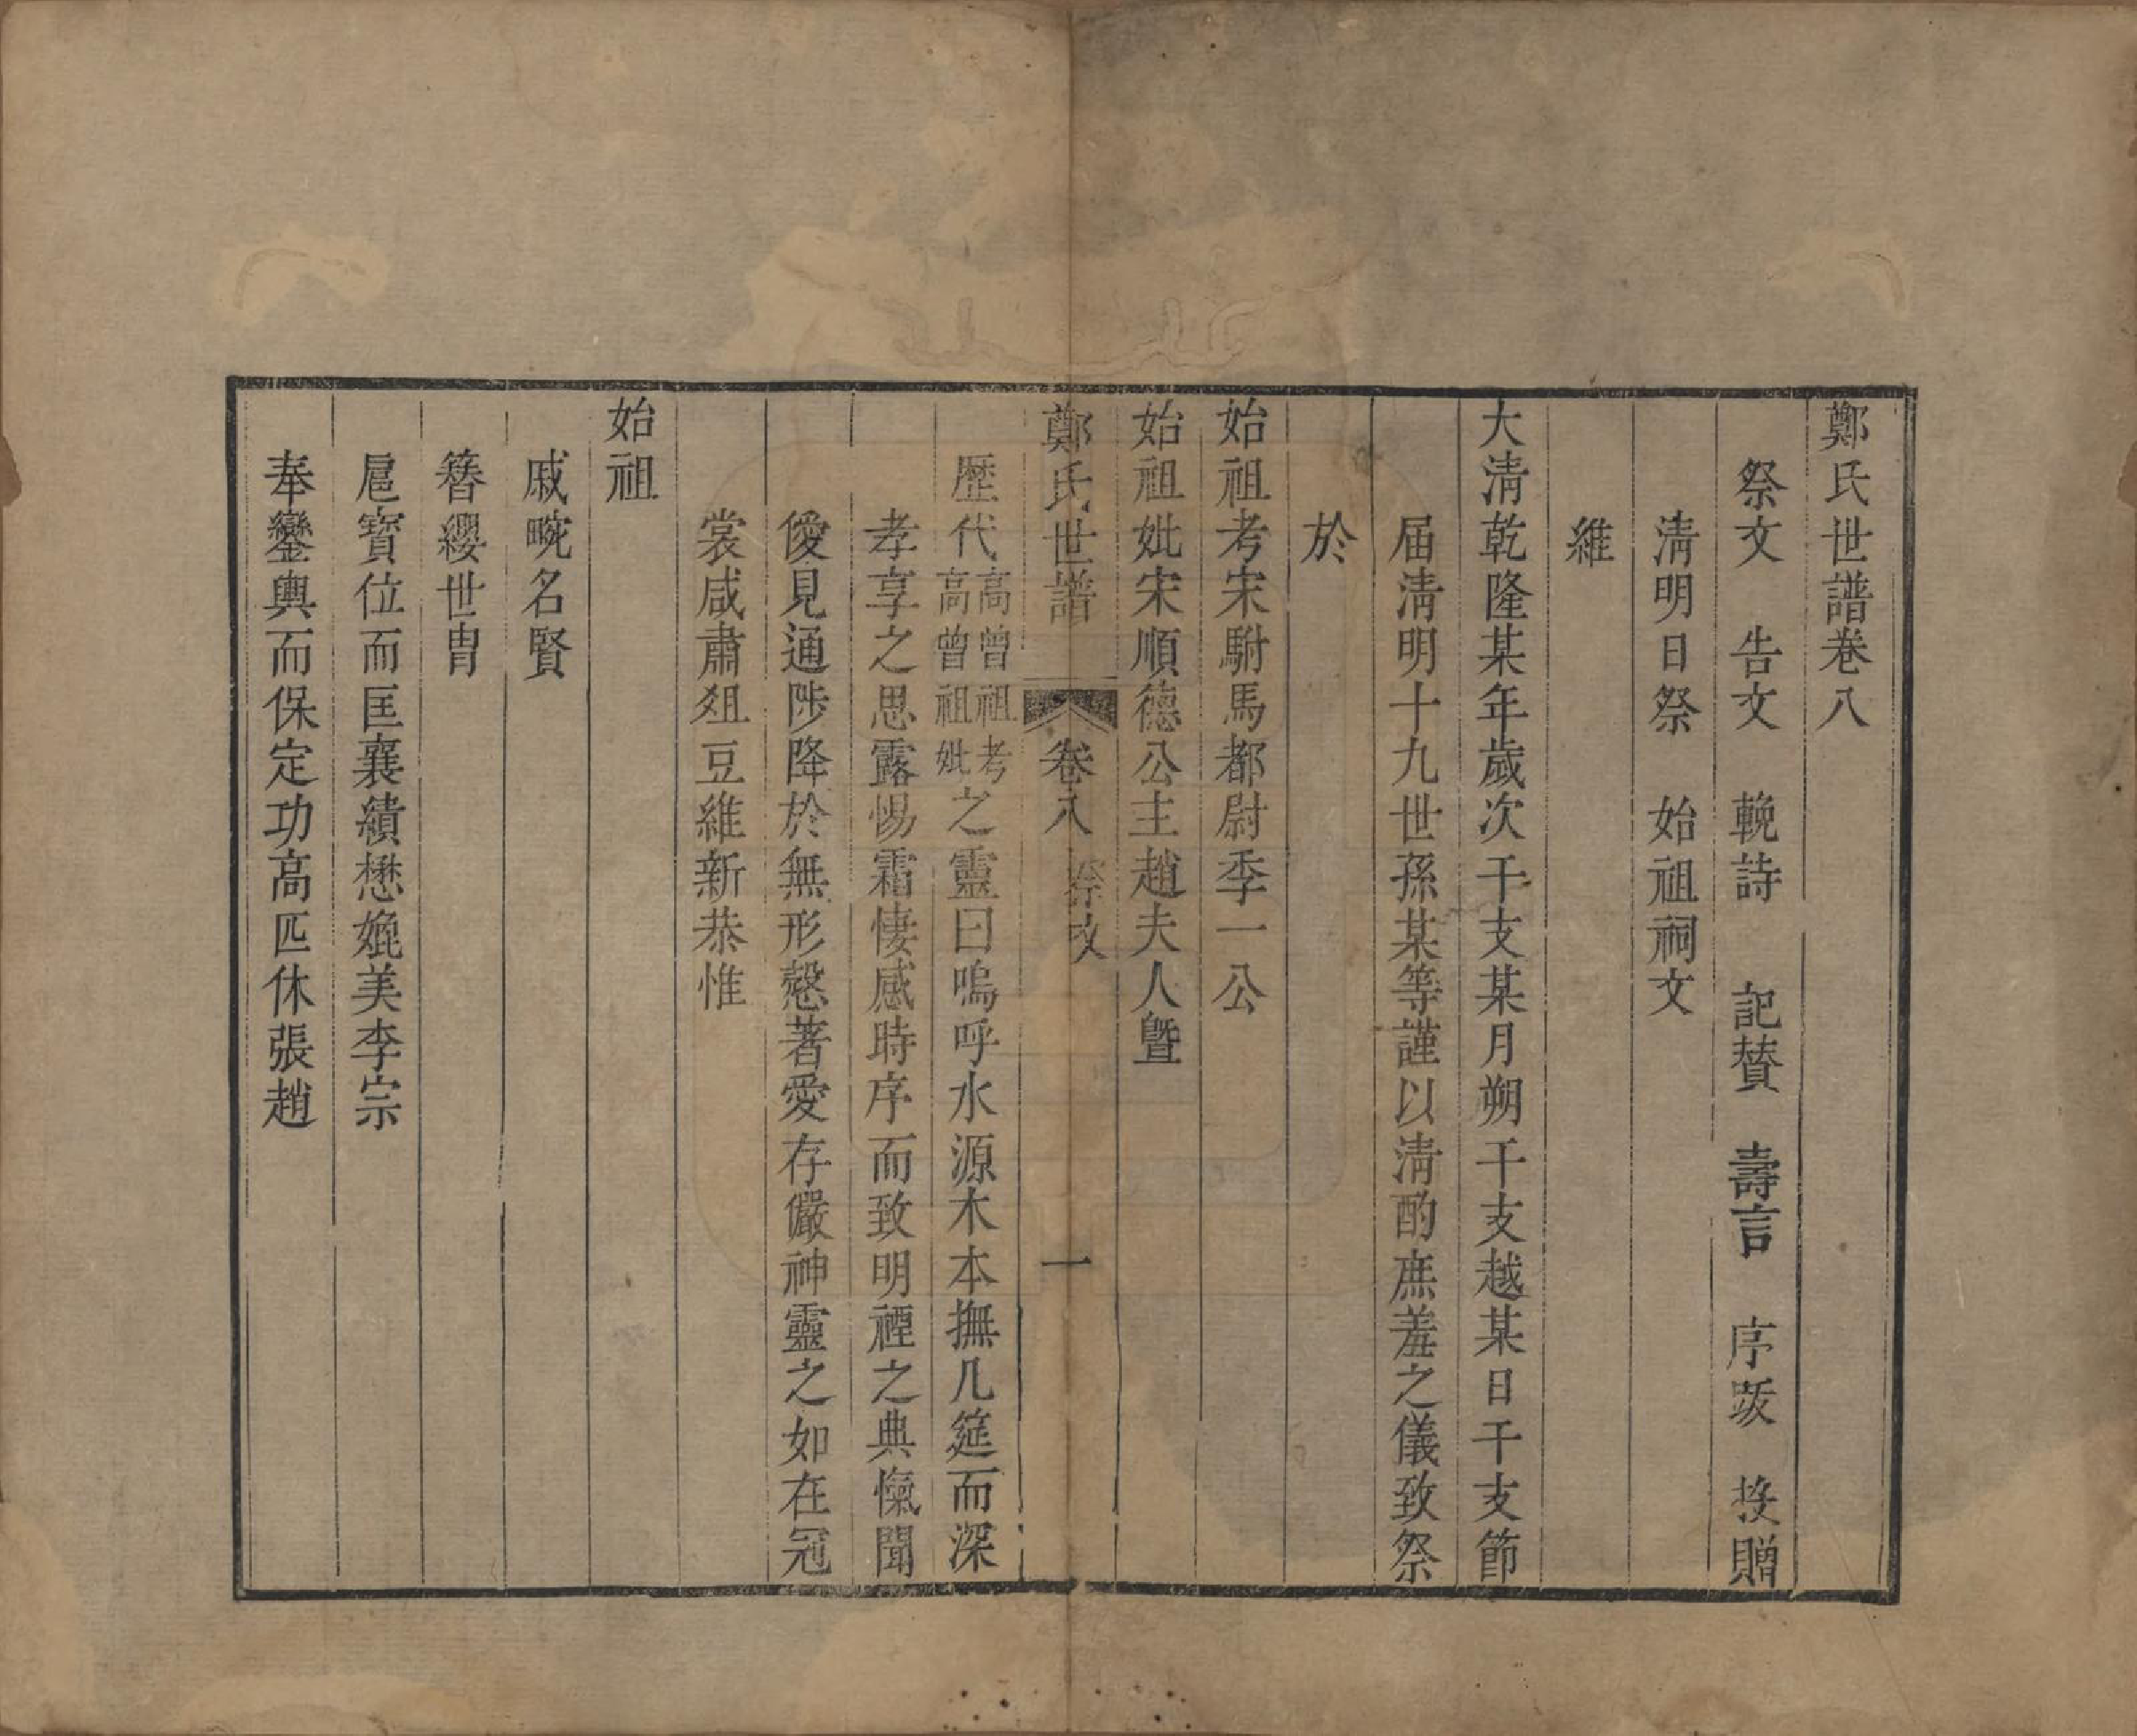 鄭氏世譜卷八
祭文　告文　輓詩　記贊　壽言　序跋　投贈
清明日祭　始祖祠文
維
大清乾隆某年歲次干支某月朔干支越某日干支節
届清明十九世孫某等謹以清酌庶羞之儀致祭
於
始祖考宋駙馬都尉季一公
始祖妣宋順德公主趙夫人曁
鄭氏世譜　卷八　祭文　一
歷代高曾祖考高曾祖妣之靈曰嗚呼水源木本撫几筵而深
孝享之思露惕霜悽感時序而致明禋之典愾聞
僾見通陟降於無形慤著愛存儼神靈之如在冠
裳咸肅俎豆維新恭惟
始祖
戚畹名賢
簪纓世胄
扈寶位而匡襄績懋媲美李宗
奉鑾輿而保定功高匹休張趙